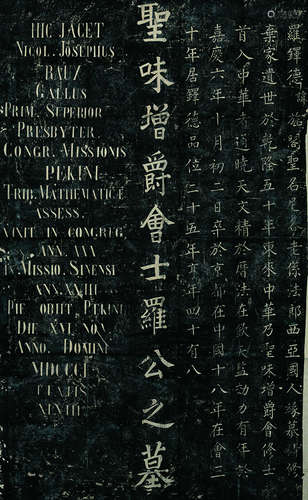 HIC JACET
NICOL. JOSEPHUS
RAUX
GALLUS
PRIM. SUPERIOR
PRESBYTER
CONGR. MISSIONIS
PEKINI
TRIB. MATHEMATICÆ
ASSESS.
VIXIT IN CONGREG
ANN. XXX
IN MISSIO. SINENSI
ANN. XVIII
PIE OBIIT PEKINI
DIE XVI NOV.
ANNO DOMINI
MDCCCI
ÆTATIS
XLVIII
聖味增爵會士羅公之墓
羅鐸德 諱 聖名尼各老係法郎西亞國人緣慕 修
棄家遺世於乾隆五十年東來中華乃聖味增爵會修士
首入中華者通曉天文精於曆法在欽天監効力有年於
嘉慶六年十月初二日卒於京都在中國十八年在會三
十年居鐸德品位二十五年享年四十有八